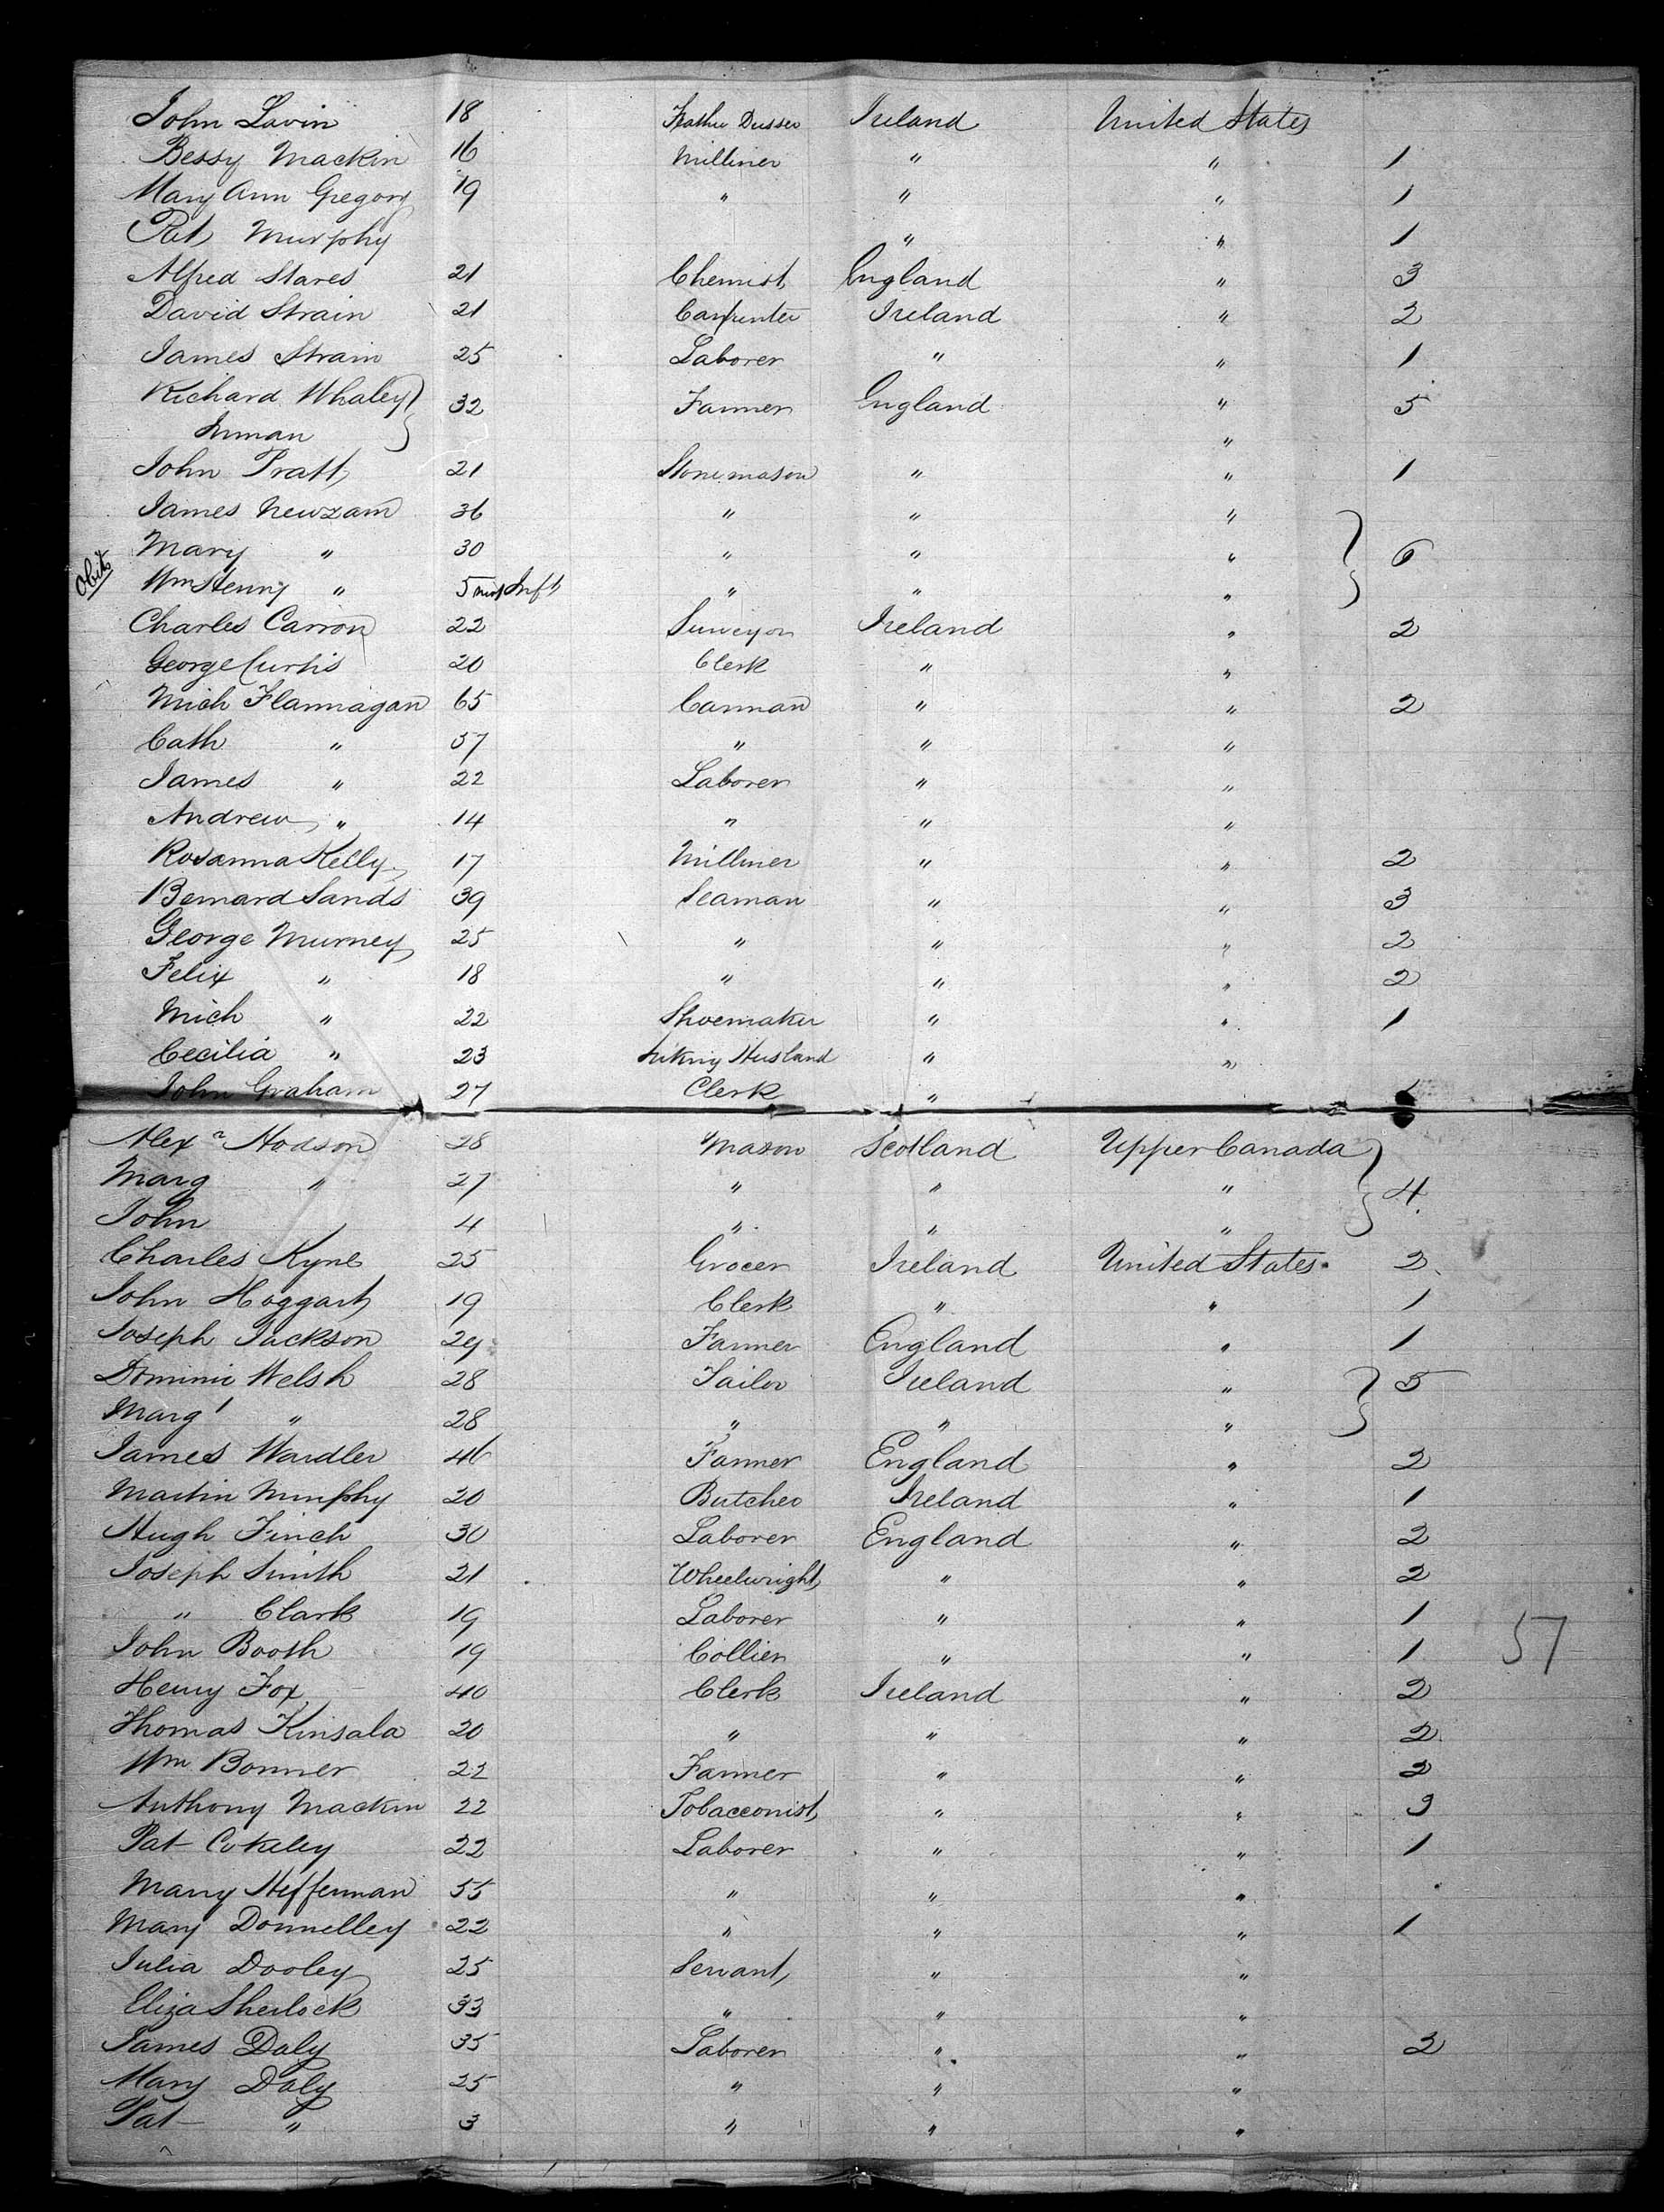 John Lavin 18 Feather Dresser Ireland United States
Bessy Mackin 16 Milliner " " 1
Mary Ann Gregory 19 " " " 1
Pat Murphy " " 1
Alfred Stares 21 Chemist England " 3
David Strain 21 Carpenter Ireland " 2
James Strain 25 Laborer " " 1
Richard Whaley 32 Farmer England " 5
Inman "
John Pratt 21 Stone mason " " 1
James Newzam 36 " " "
Mary " 30 " " " 6
Obit Wm Henry " 5 mos Inft " " "
Charles Carron 22 Surveyor Ireland " 2
George Curtis 20 Clerk " "
Mich Flannagan 65 Carman " " 2
Cath " 57 " " "
James " 22 Laborer " "
Andrew " 14 " " "
Rosanna Kelly 17 Milliner " " 2
Bernard Sands 39 Seaman " " 3
George Murney 25 " " " 2
Felix " 18 " " " 2
Mich " 22 Shoemaker " " 1
Cecilia " 23 Husband " "
John Graham 27 Clerk "
Alexr Hodson 28 Mason Scotland Upper Canada
Marg " 27 " " " 4
John 4 " " "
Charles Kyne 25 Grocer Ireland United States 2
John Hoggart 19 Clerk " " 1
Joseph Jackson 29 Farmer England " 1
Dominic Welsh 28 Tailor Ireland " 5
Margt " 28 " " "
James Wardler 46 Farmer England " 2
Martin Murphy 20 Butcher Ireland " 1
Hugh Finch 30 Laborer England " 2
Joseph Smith 21 Wheelwright " " 2
" Clark 19 Laborer " " 1
John Booth 19 Collier " " 1 57
Henry Fox 40 Clerk Ireland " 2
Thomas Kinsala 20 " " " 2
Wm Bonner 22 Farmer " " 2
Anthony Mackin 22 Tobacconist " " 3
Pat Cokeley 22 Laborer " " 1
Mary Heffernan 55 " " "
Mary Donnelley 22 " " " 1
Julia Dooley 25 Servant " "
Eliza Sherlock 33 " " "
James Daly 35 Laborer " " 2
Mary Daly 25 " " "
Pat " 3 " " "